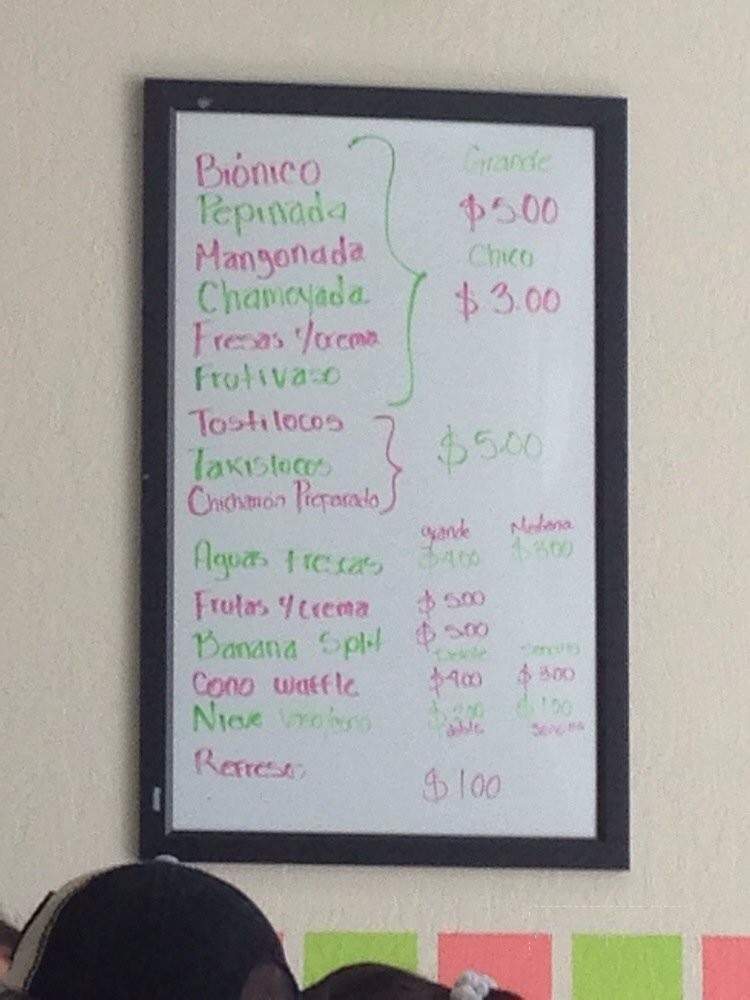 Biónico Grande
Pepinada $500
Mangonada Chico
Chamoyada $3.00
Fresas y/crema
Frutivaso
Tostilocos
Takislocos $5.00
Chicharrón Preparado
grande Mediana
Aguas frescas $400 $300
Frutas y/crema $500
Banana Split $500
Doble Sencillo
Cono waffle $400 $300
Nieve $100
doble Sencilla
Refresco $100